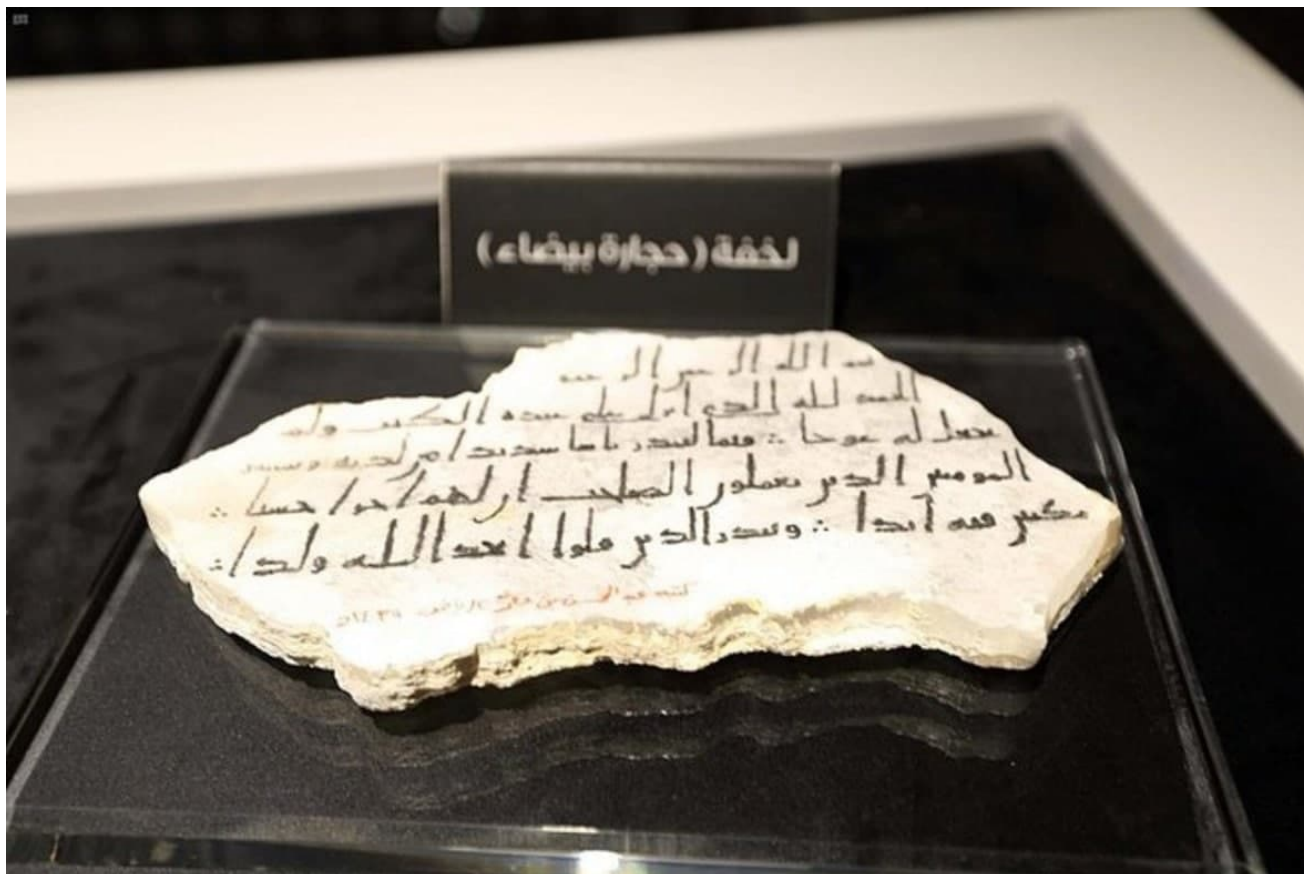 لخفة (حجارة بيضاء)
بسم الله الرحمن الرحيم
الحمد لله الذي أنزل على عبده الكتب ولم
يجعل له عوجا ∴ قيما لينذر بأسا شديدا من لدنه ويبشر
المومنين الذين يعملون الصلحت أن لهم أجرا حسنا ∴
مكثين فيه أبدا ∴ وينذر الذين قالوا اتخذ الله ولدا ∴
كتبه عبد